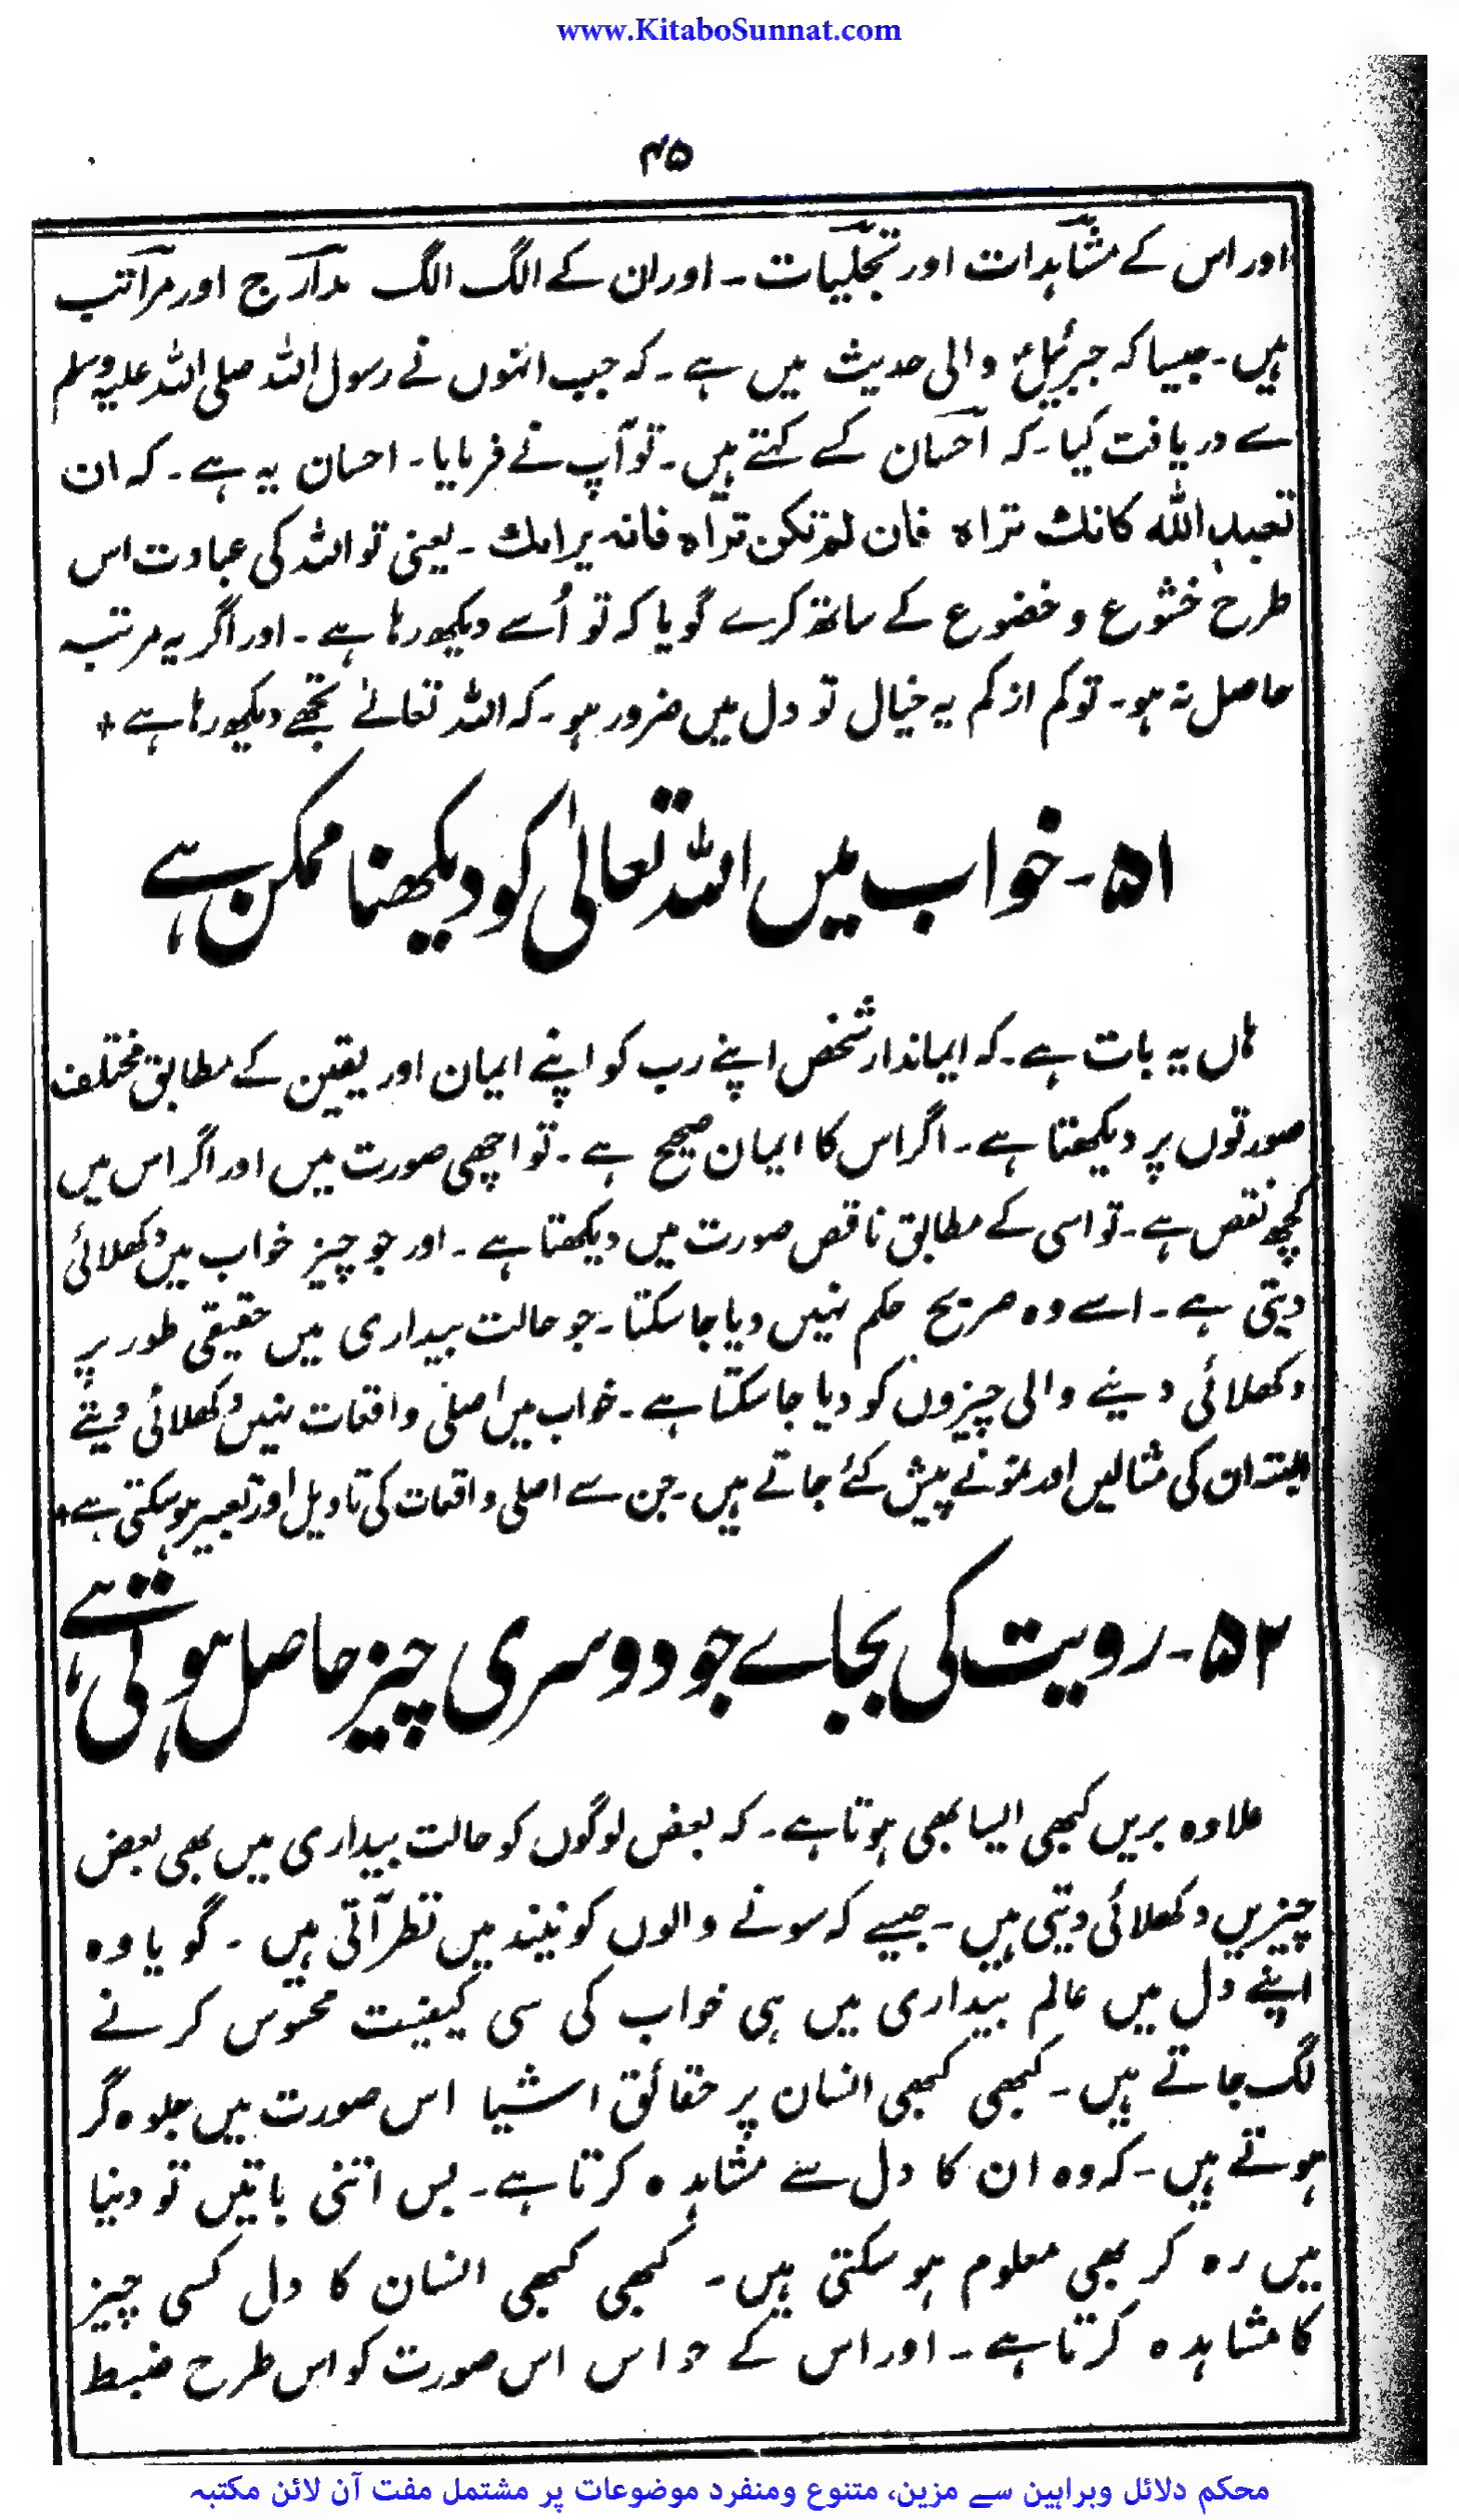 www.KitaboSunnat.com
۴۵
اور اس کے مشاہدات اور تجلیات ۔ اور ان کے الگ الگ مدارج اور مراتب
ہیں ۔ جیسا کہ جبرئیلؑ والی حدیث میں ہے ۔ کہ جب انہوں نے رسول اللہ صلی اللہ علیہ وسلم
سے دریافت کیا ۔ کہ احسان کسے کہتے ہیں ۔ تو آپ نے فرمایا ۔ احسان یہ ہے ۔ کہ ان
تعبد اللہ کانك تراہ فان لم تکن تراہ فانہ یراك ۔ یعنی تو اللہ کی عبادت اس
طرح خشوع و خضوع کے ساتھ کرے گویا کہ تو اُسے دیکھ رہا ہے ۔ اور اگر یہ مرتبہ
حاصل نہ ہو ۔ تو کم از کم یہ خیال تو دل میں ضرور ہو ۔ کہ اللہ تعالےٰ تجھے دیکھ رہا ہے +
۵۱ ۔ خواب میں اللہ تعالیٰ کو دیکھنا ممکن ہے
ہاں یہ بات ہے ۔ کہ ایماندار شخص اپنے رب کو اپنے ایمان اور یقین کے مطابق مختلف
صورتوں پر دیکھتا ہے ۔ اگر اس کا ایمان صحیح ہے ۔ تو اچھی صورت میں اور اگر اس میں
کچھ نقص ہے ۔ تو اسی کے مطابق ناقص صورت میں دیکھتا ہے ۔ اور جو چیز خواب میں دکھلائی
دیتی ہے ۔ اسے وہ صریح حکم نہیں دیا جا سکتا ۔ جو حالت بیداری میں حقیقی طور پر
دکھلائی دینے والی چیزوں کو دیا جا سکتا ہے ۔ خواب میں اصلی واقعات نہیں دکھلائی دیتے
البتہ ان کی مثالیں اور نمونے پیش کئے جاتے ہیں ۔ جن سے اصلی واقعات کی تاویل اور تعبیر ہو سکتی ہے +
۵۲ ۔ رویت کی بجاے جو دوسری چیز حاصل ہوتی ہے
علاوہ بریں کبھی ایسا بھی ہوتا ہے ۔ کہ بعض لوگوں کو حالت بیداری میں بھی بعض
چیزیں دکھلائی دیتی ہیں ۔ جیسے کہ سونے والوں کو نیند میں نظر آتی ہیں ۔ گویا وہ
اپنے دل میں عالم بیداری میں ہی خواب کی سی کیفیت محسوس کرنے
لگ جاتے ہیں ۔ کبھی کبھی انسان پر حقائق اشیا اس صورت میں جلوہ گر
ہوتے ہیں ۔ کہ وہ ان کا دل سے مشاہدہ کرتا ہے ۔ بس اتنی باتیں تو دنیا
میں رہ کر بھی معلوم ہو سکتی ہیں ۔ کبھی کبھی انسان کا دل کسی چیز
کا مشاہدہ کرتا ہے ۔ اور اس کے حواس اس صورت کو اس طرح ضبط
محکم دلائل وبراہین سے مزین، متنوع ومنفرد موضوعات پر مشتمل مفت آن لائن مکتبہ